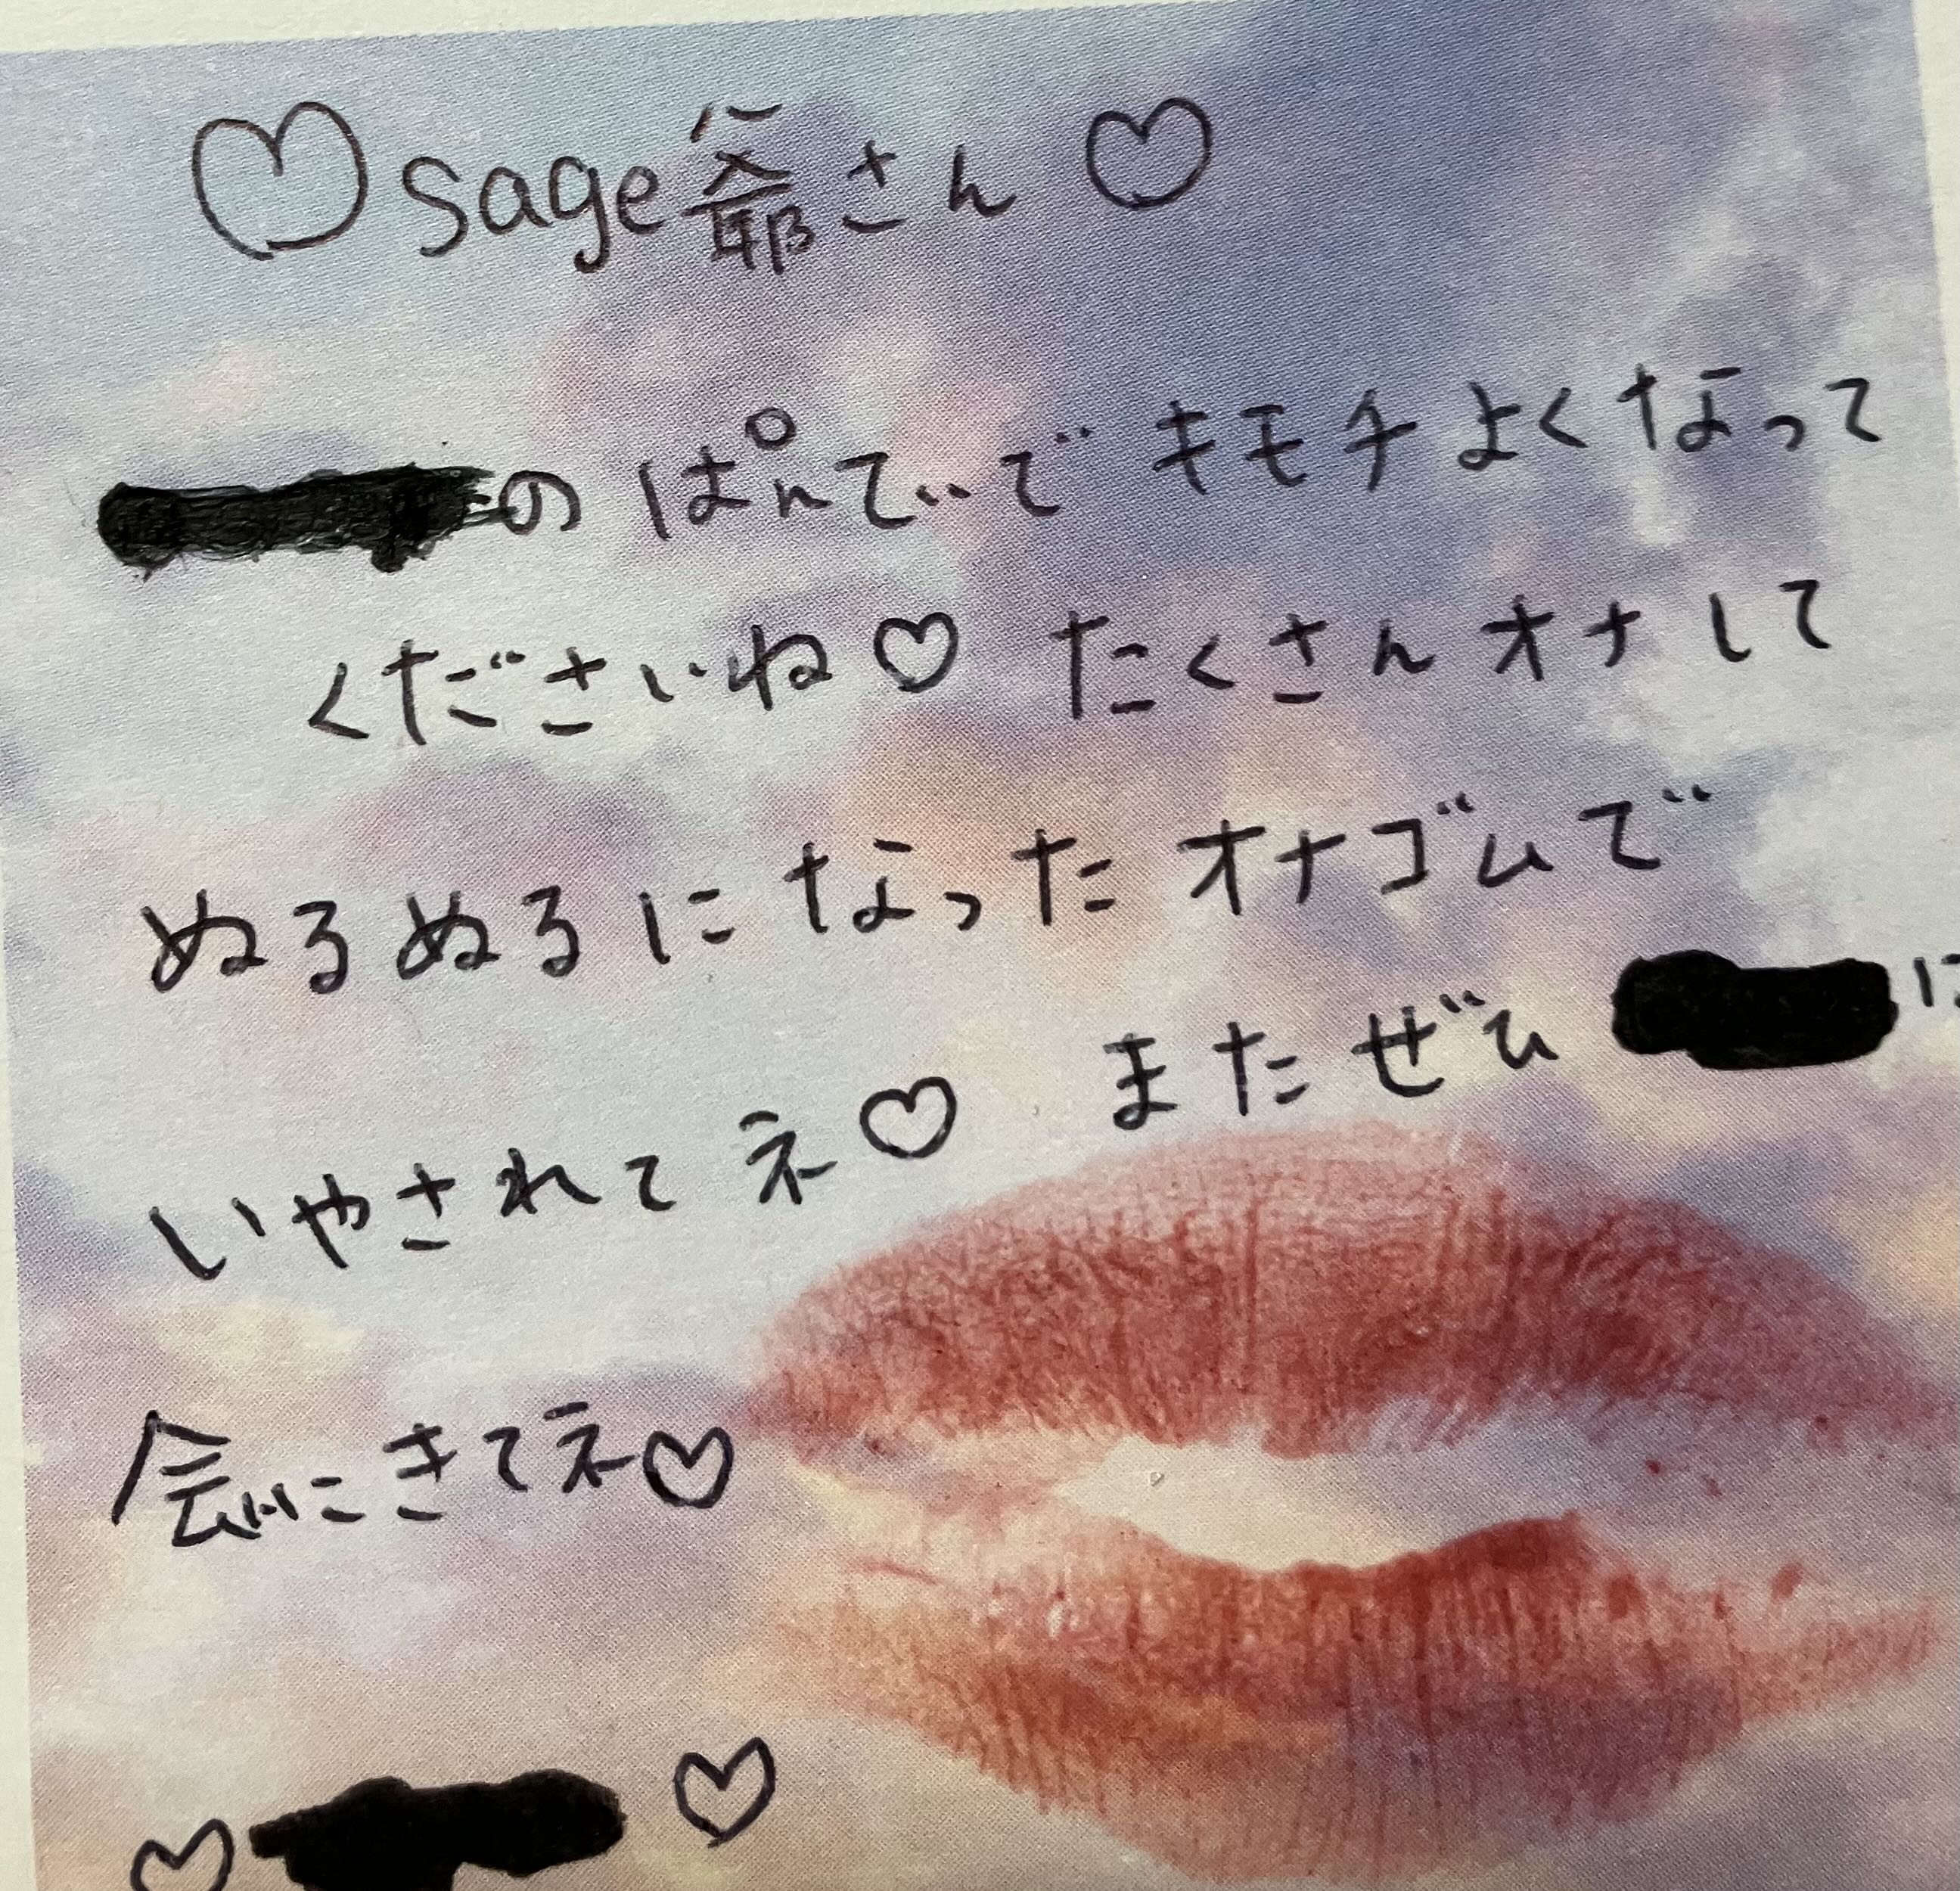 ♡sage爺さん♡
のぱんてぃでキモチよくなって
くださいね♡ たくさんオナして
ぬるぬるになったオナゴムで
いやされてネ♡ またぜひ に
会いにきてネ♡
♡ ♡